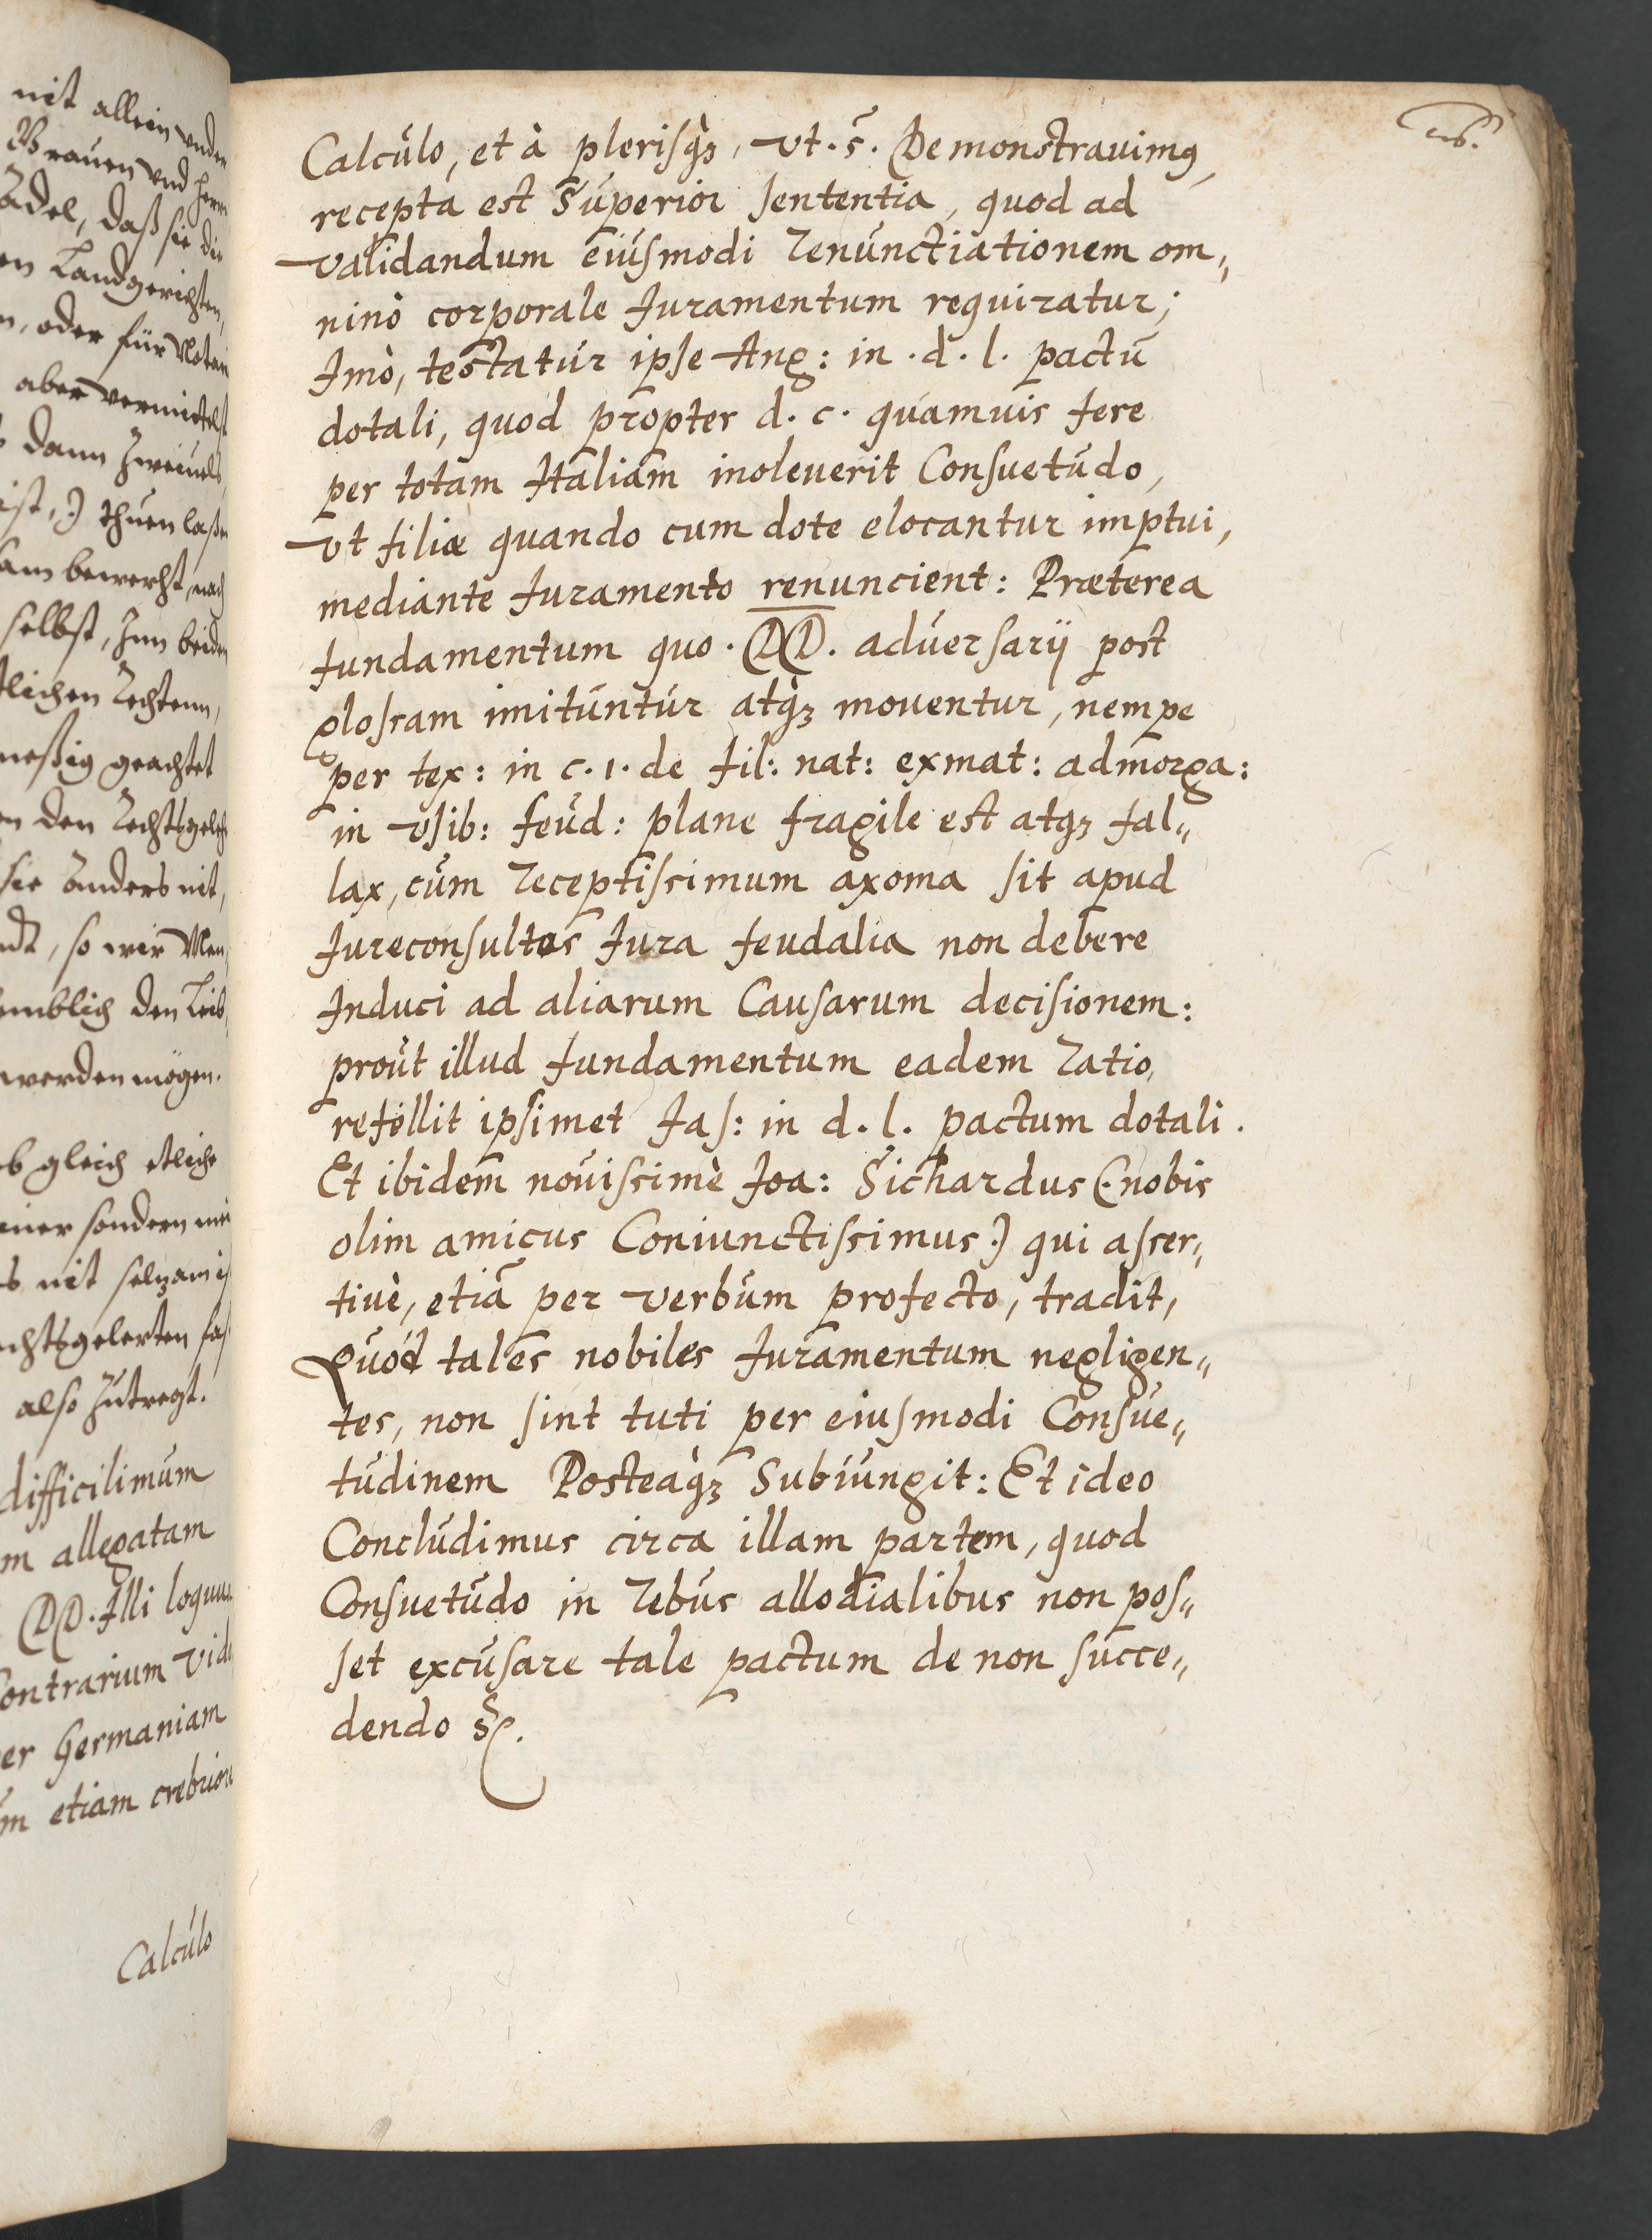 nit allein vnder
Grauen vnd herrn
Adel, daß sie die
en Landgerichten,
n, oder für Notari
aber vermittelst
dann Zweiuels
ist,) thuen laßen
selbst, Inn beiden
tlichen Rechtenn,
meßig geachtet
en den Rechtsgeleh
sie Anders nit,
, so wir
emblich den Leib,
werden mögen.
ob gleich etliche
einer sondern
s nit selzam
chtsgelerten
also zutregt.
difficilimum
m allegatam
DD. Illi loquun
Contrarium vid
er Germaniam
um etiam crebrior
Calculo
Calculo, et à plerisq́ꝫ, vt. s̃. Demonstrauimꝯ,
recepta est Superior sententia, quod ad
validandum eiusmodi renunctiationem om„
ninò corporale Iuramentum requiratur;
Imò, testatur ipse Ang: in. d. l. pactū
dotali, quod propter d. c. quamuis fere
per totam Italiam inoleuerit Consuetudo,
vt filiæ quando cum dote elocantur imptui,
mediante Iuramento renuncient: Præterea
fundamentum quo. DD. aduersarij post
glossam imituntur atq́ꝫ mouentur, nempe
per tex: in c. 1. de fil: nat: exmat: admorga:
in vsib: feud: plane fragile est atqꝫ fal„
lax, cum receptissimum axoma sit apud
Iureconsultos Iura feudalia non debere
Induci ad aliarum Causarum decisionem:
prout illud fundamentum eadem ratio,
refollit ipsimet Jas: in d. l. pactum dotali.
Et ibidem nouissimè Joa: Sichardus (: nobis
olim amicus Coniunctissimus :) qui asser„
tiuè, etiā per verbum profecto, tradit,
Quòd tales nobiles Iuramentum negligen„
tes, non sint tuti per eiusmodi Consue„
tudinem Posteaq́ꝫ Subiungit: Et ideo
Concludimus circa illam partem, quod
Consuetudo in rebus allodialibus non pos„
set excusare tale pactum de non succe„
dendo ꝛc.